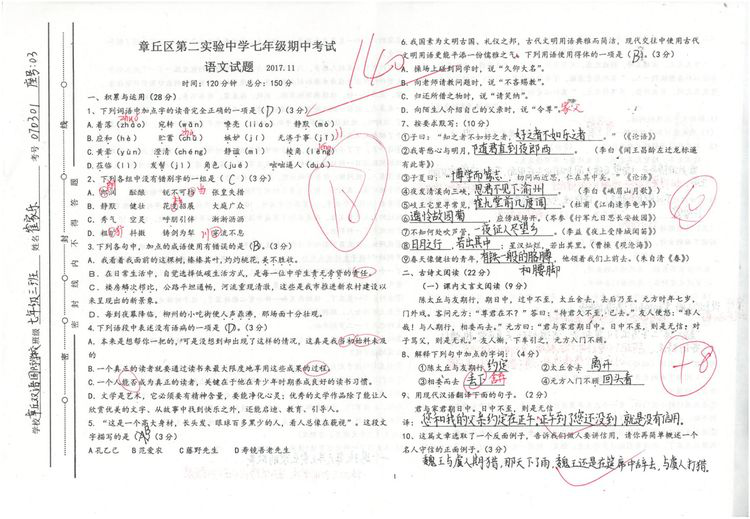 章丘区第二实验中学七年级期中考试
语文试题 2017.11
时间:120分钟 总分:150分
一、积累与运用(28分)
1、下列词语中加点字的读音完全正确的一项是(D)(3分)
A.着落(zháo) 宛转(wǎn) 嘹亮(liáo) 静默(mò)
B.应和(hè) 贮蓄(chǔ) 嫉妒(jí) 无济于事(jǐ)
C.黄晕(yùn) 澄清(chéng) 静谧(mì) 棱角(léng)
D.莅临(lì) 发髻(jì) 角色(jué) 咄咄逼人(duō)
2、下列各组中没有错别字的一组是(C)(3分)
B. 静默 健壮 花枝招展 大庭广众
C. 秀气 空灵 呼朋引伴 淅淅沥沥
3、下列各句中,加点的成语使用有错误的是(B)。(3分)
A. 我看着我面前的这棵树,榛榛其叶,灼灼桃花,美不胜收。
B. 在日常生活中,自觉选择低碳生活方式,是每一位中学生责无旁贷的责任。
C. 楼房鳞次栉比,公路平坦通畅,河流重现清澈,这些是我市推进新农村建设以
来呈现出的新景象。
D. 每到夜幕降临,柳州的小吃街便人声鼎沸,那场面十分壮观。
4、下列语段中表述没有语病的一项是(D)。(3分)
A. 本来是想帮你一把的,可是没想到却出现了这样的情况,这真是我当初始料未及
的
B.一个真正的读者就要通过读书来最大限度地享用这些成果的过程。
C.一个人能否成为真正的读者,关键在于他在青少年时期养成良好的读书习惯。
D. 文学是艺术,它必须要有精神含量,要能净化心灵;优秀的文学作品除了能让人
欣赏优美的文字、从故事中找到快乐之外,还能启迪、教育、引导人。
5、“这是一个高大身材,长头发,眼球白多黑少的人,看人总像在藐视”。这段文
字描写的是(B)(3分)
A孔乙己 B范爱农 C藤野先生 D寿镜吾老先生
6.我国素为文明古国、礼仪之邦,古代文明用语典雅而简洁,现代交往中使用古代
文明用语更能平添一份儒雅之气。下列用语使用得体的一项是(B)。(3分)
A. 操场上碰到同学时,说“久仰大名”。
B. 向老师请教问题时,说“不吝赐教”。
C. 归还所借之物时,说“请笑纳”。
D. 向陌生人介绍自己的父亲时,说“令尊”。
7、按要求默写:(10分)
①子曰:“知之者不如好之者,好之者不如乐之者”。(《论语》)
②我寄愁心与明月,随君直到夜郎西。(李白《闻王昌龄左迁龙标遥
有此寄》)
③子夏曰:“博学而笃志,切问而近思,仁在其中矣。”(《论语》)
④夜发清溪向三峡,思君不见下渝州。(李白《峨眉山月歌》)
⑤岐王宅里寻常见,崔九堂前几度闻。(杜甫《江南逢李龟年》)
⑥遥怜故园菊,应傍战场开。(岑参《行军九日思长安故园》)
⑦不知何处吹芦管,一夜征人尽望乡。(李益《夜上受降城闻笛》)
⑧日月之行,若出其中;星汉灿烂,若出其里。(曹操《观沧海》)
⑨春天像健壮的青年,有铁一般的胳膊和腰脚,他领着我们上前去。(朱自清《春》)
二、古诗文阅读(22分)
(一)课内文言文阅读(9分)
陈太丘与友期行,期日中,过中不至,太丘舍去,去后乃至。元方时年七岁,
门外戏。客问元方:“尊君在不?”答曰:“待君久不至,已去。”友人便怒:“非人
哉!与人期行,相委而去。”元方曰:“君与家君期日中。日中不至,则是无信;对
子骂父,则是无礼。”友人惭,下车引之,元方入门不顾。
8、解释下列句中加点的字词:(4分)
①陈太丘与友期行 约定 ②太丘舍去 离开
③相委而去 丢下 舍弃 ④元方入门不顾 回头看
9、用现代汉语翻译下面的句子。(2分)
君与家君期日中。日中不至,则是无信
译:您和我的父亲约定在正午。正午到了您还没到,就是没有信用。
10、这篇文章选取了一个反面例子,告诉我们做人要讲信用,请你再简单概述一个
名人守信的正面例子。
魏王与虞人期猎,那天下了雨,魏王还是在筵席中辞去,与虞人打猎。
1
140
18
10
+8
学校 章丘双语国际学校 班级 七年级三班 姓名 崔家乐 考号 070301 座号:03
密 封 线 内 不 得 答 题